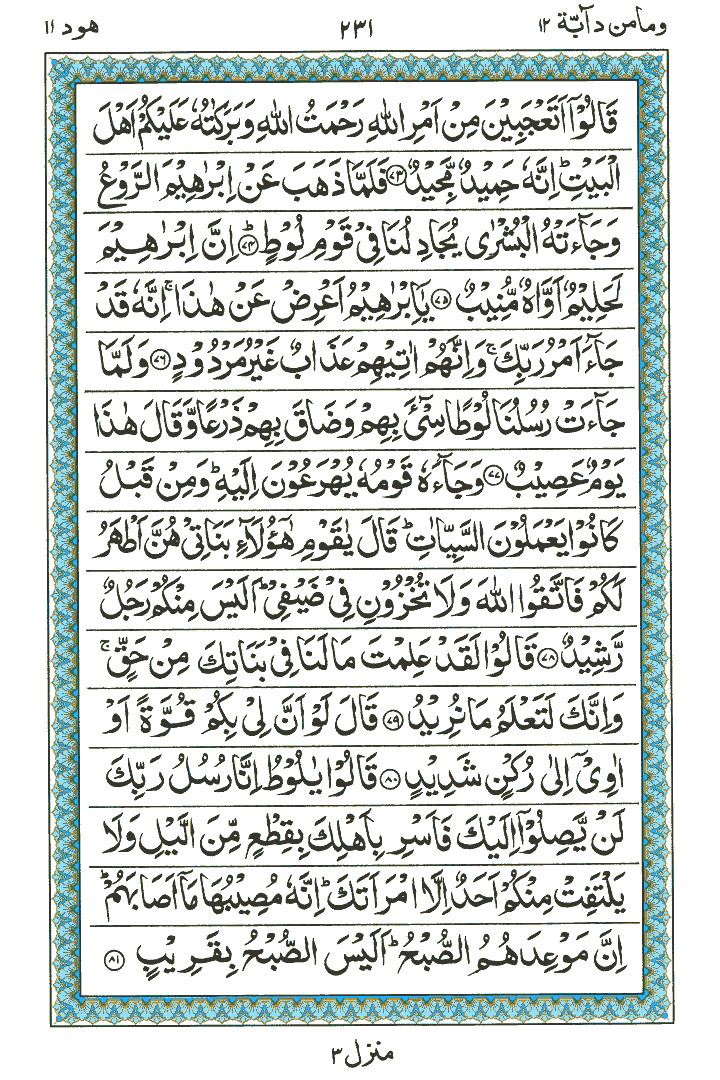 ومامن دآبة ١٢ ٢٣١ هود ١١
قَالُوْۤا اَتَعْجَبِيْنَ مِنْ اَمْرِ اللّٰهِ رَحْمَتُ اللّٰهِ وَ بَرَكٰتُهٗ عَلَيْكُمْ اَهْلَ
الْبَيْتِؕ اِنَّهٗ حَمِيْدٌ مَّجِيْدٌ ﴿۷۳﴾ فَلَمَّا ذَهَبَ عَنْ اِبْرٰهِيْمَ الرَّوْعُ
وَ جَآءَتْهُ الْبُشْرٰى يُجَادِلُنَا فِيْ قَوْمِ لُوْطٍؕ ﴿۷۴﴾ اِنَّ اِبْرٰهِيْمَ
لَحَلِيْمٌ اَوَّاهٌ مُّنِيْبٌ ﴿۷۵﴾ يٰۤاِبْرٰهِيْمُ اَعْرِضْ عَنْ هٰذَاۚ اِنَّهٗ قَدْ
جَآءَ اَمْرُ رَبِّكَۚ وَ اِنَّهُمْ اٰتِيْهِمْ عَذَابٌ غَيْرُ مَرْدُوْدٍ ﴿۷۶﴾ وَ لَمَّا
جَآءَتْ رُسُلُنَا لُوْطًا سِيْٓءَ بِهِمْ وَ ضَاقَ بِهِمْ ذَرْعًا وَّ قَالَ هٰذَا
يَوْمٌ عَصِيْبٌ ﴿۷۷﴾ وَ جَآءَهٗ قَوْمُهٗ يُهْرَعُوْنَ اِلَيْهِؕ وَ مِنْ قَبْلُ
كَانُوْا يَعْمَلُوْنَ السَّيِّاٰتِؕ قَالَ يٰقَوْمِ هٰۤؤُلَآءِ بَنَاتِيْ هُنَّ اَطْهَرُ
لَكُمْ فَاتَّقُوا اللّٰهَ وَ لَا تُخْزُوْنِ فِيْ ضَيْفِيْؕ اَلَيْسَ مِنْكُمْ رَجُلٌ
رَّشِيْدٌ ﴿۷۸﴾ قَالُوْا لَقَدْ عَلِمْتَ مَا لَنَا فِيْ بَنَاتِكَ مِنْ حَقٍّۚ
وَ اِنَّكَ لَتَعْلَمُ مَا نُرِيْدُ ﴿۷۹﴾ قَالَ لَوْ اَنَّ لِيْ بِكُمْ قُوَّةً اَوْ
اٰوِيْۤ اِلٰى رُكْنٍ شَدِيْدٍ ﴿۸۰﴾ قَالُوْا يٰلُوْطُ اِنَّا رُسُلُ رَبِّكَ
لَنْ يَّصِلُوْۤا اِلَيْكَ فَاَسْرِ بِاَهْلِكَ بِقِطْعٍ مِّنَ الَّيْلِ وَ لَا
يَلْتَفِتْ مِنْكُمْ اَحَدٌ اِلَّا امْرَاَتَكَؕ اِنَّهٗ مُصِيْبُهَا مَاۤ اَصَابَهُمْؕ
اِنَّ مَوْعِدَهُمُ الصُّبْحُؕ اَلَيْسَ الصُّبْحُ بِقَرِيْبٍ ﴿۸۱﴾
منزل ٣